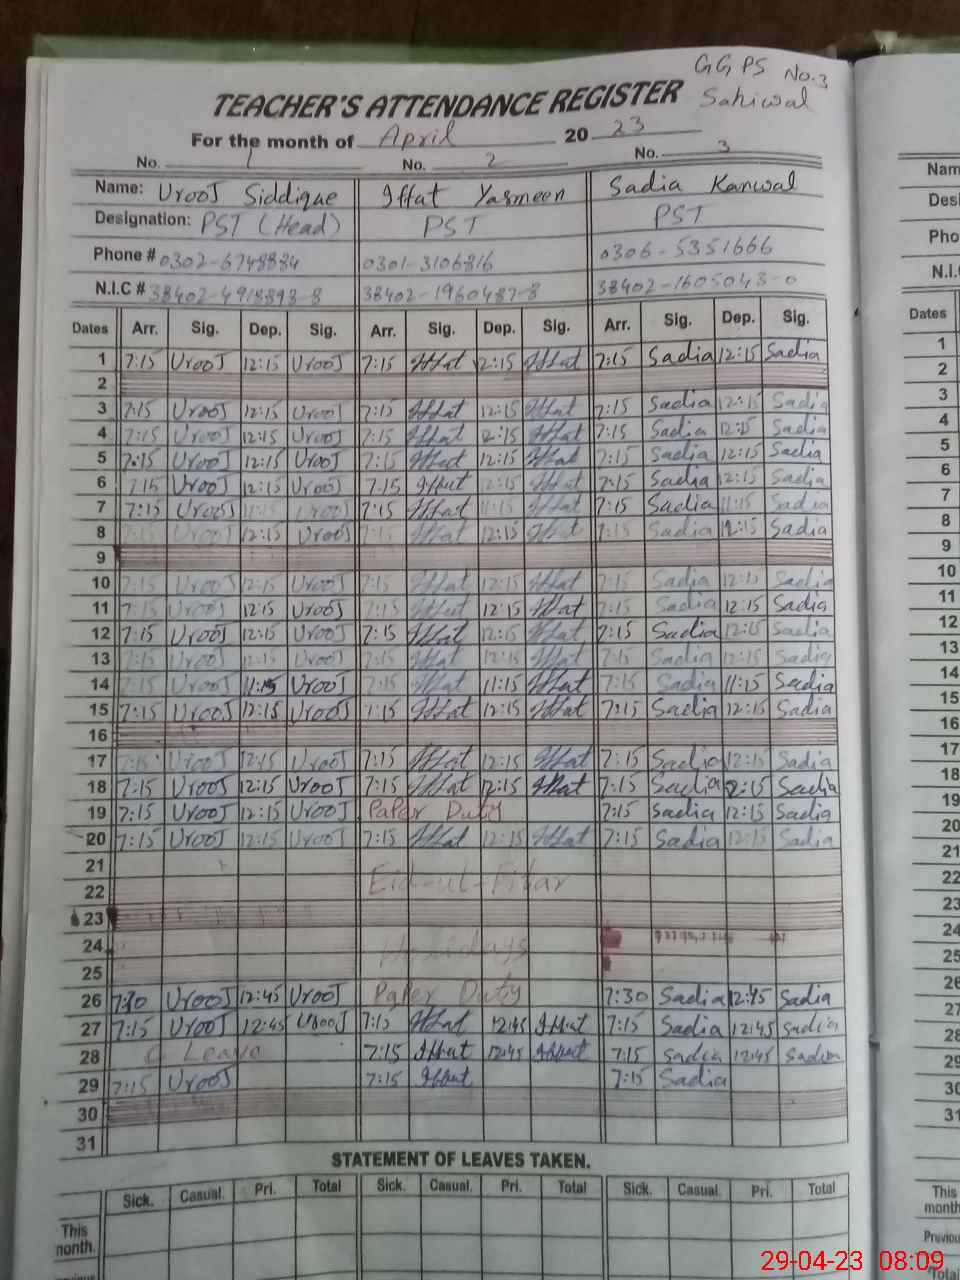 GGPS No.3
Sahiwal
TEACHER'S ATTENDANCE REGISTER
For the month of April 2023
No. 1 No. 2 No. 3
Name: Urooj Siddique Iffat Yasmeen Sadia Kanwal
Designation: PST (Head) PST PST
Phone # 0302-6748884 0301-3106816 0306-5351666
N.I.C # 38402-4918893-8 38402-1960487-8 38402-1605043-0
Dates Arr. Sig. Dep. Sig. Arr. Sig. Dep. Sig. Arr. Sig. Dep. Sig.
1 7:15 Urooj 12:15 Urooj 7:15 Iffat 12:15 Iffat 7:15 Sadia 12:15 Sadia
2
3 7:15 Urooj 12:15 Urooj 7:15 Iffat 12:15 Iffat 7:15 Sadia 12:15 Sadia
4 7:15 Urooj 12:15 Urooj 7:15 Iffat 12:15 Iffat 7:15 Sadia 12:15 Sadia
5 7:15 Urooj 12:15 Urooj 7:15 Iffat 12:15 Iffat 7:15 Sadia 12:15 Sadia
6 7:15 Urooj 12:15 Urooj 7:15 Iffat 12:15 Iffat 7:15 Sadia 12:15 Sadia
7 7:15 Urooj 11:15 Urooj 7:15 Iffat 11:15 Iffat 7:15 Sadia 11:15 Sadia
8 7:15 Urooj 12:15 Urooj 7:15 Iffat 12:15 Iffat 7:15 Sadia 12:15 Sadia
9
10 7:15 Urooj 12:15 Urooj 7:15 Iffat 12:15 Iffat 7:15 Sadia 12:15 Sadia
11 7:15 Urooj 12:15 Urooj 7:15 Iffat 12:15 Iffat 7:15 Sadia 12:15 Sadia
12 7:15 Urooj 12:15 Urooj 7:15 Iffat 12:15 Iffat 7:15 Sadia 12:15 Sadia
13 7:15 Urooj 12:15 Urooj 7:15 Iffat 12:15 Iffat 7:15 Sadia 12:15 Sadia
14 7:15 Urooj 11:15 Urooj 7:15 Iffat 11:15 Iffat 7:15 Sadia 11:15 Sadia
15 7:15 Urooj 12:15 Urooj 7:15 Iffat 12:15 Iffat 7:15 Sadia 12:15 Sadia
16
17 7:15 Urooj 12:15 Urooj 7:15 Iffat 12:15 Iffat 7:15 Sadia 12:15 Sadia
18 7:15 Urooj 12:15 Urooj 7:15 Iffat 12:15 Iffat 7:15 Sadia 12:15 Sadia
19 7:15 Urooj 12:15 Urooj Paper Duty 7:15 Sadia 12:15 Sadia
20 7:15 Urooj 12:15 Urooj 7:15 Iffat 12:15 Iffat 7:15 Sadia 12:15 Sadia
21
22 Eid-ul-Fitar
23
24 Holidays
25
26 7:30 Urooj 12:45 Urooj Paper Duty 7:30 Sadia 12:45 Sadia
27 7:15 Urooj 12:45 Urooj 7:15 Iffat 12:45 Iffat 7:15 Sadia 12:45 Sadia
28 C Leave 7:15 Iffat 12:45 Iffat 7:15 Sadia 12:45 Sadia
29 7:15 Urooj 7:15 Iffat 7:15 Sadia
30
31
STATEMENT OF LEAVES TAKEN.
Sick. Casual. Pri. Total Sick. Casual. Pri. Total Sick. Casual. Pri. Total
This
month.
Nam
Desi
Pho
N.I.C
Dates
1
2
3
4
5
6
7
8
9
10
11
12
13
14
15
16
17
18
19
20
21
22
23
24
25
26
27
28
29
30
31
This
month
Previou
Total
29-04-23 08:09